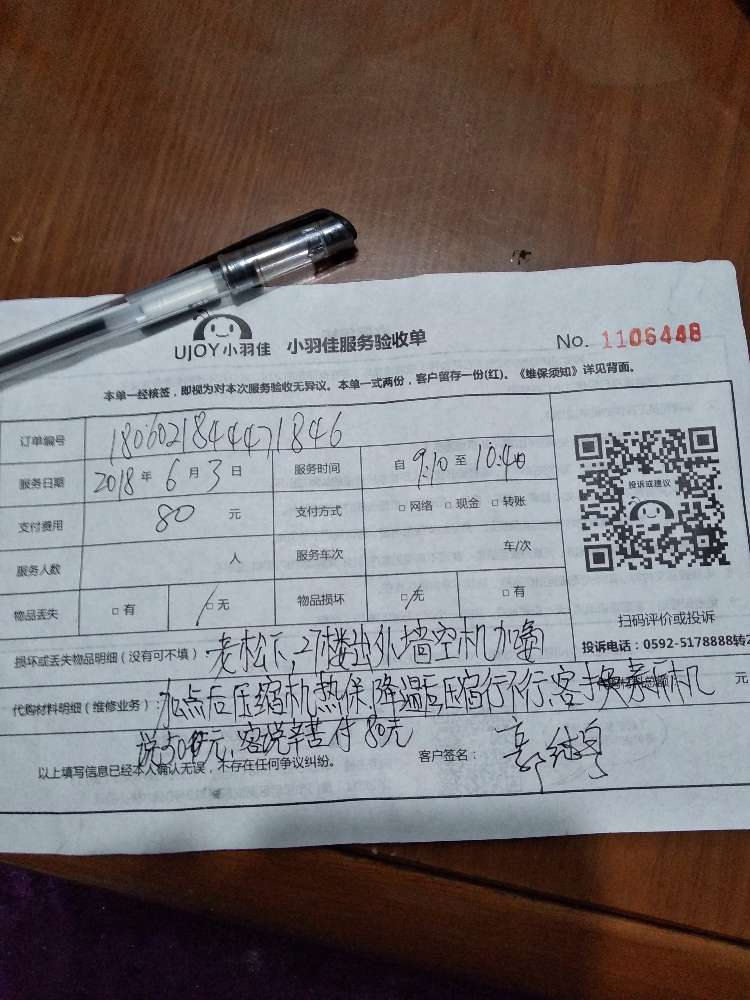 UJOY小羽佳 小羽佳服务验收单 No. 1106448
本单一经核签，即视为对本次服务验收无异议。本单一式两份，客户留存一份(红)。《维保须知》详见背面。
订单编号 180602184471846
服务日期 2018年6月3日 服务时间 自9:10至10:40
支付费用 80元 支付方式 □网络 □现金 □转账
服务人数 人 服务车次 车/次
物品丢失 □有 □无 物品损坏 □无 □有
投诉或建议
扫码评价或投诉
投诉电话：0592-5178888转2
损坏或丢失物品明细（没有可不填）老松下，27楼出外墙空机加
代购材料明细（维修业务）：加点后压缩机热保，降温后压缩行不行，客 换 机 元
说50元，客说辛苦付80元
以上填写信息已经本人确认无误，不存在任何争议纠纷。 客户签名：郭